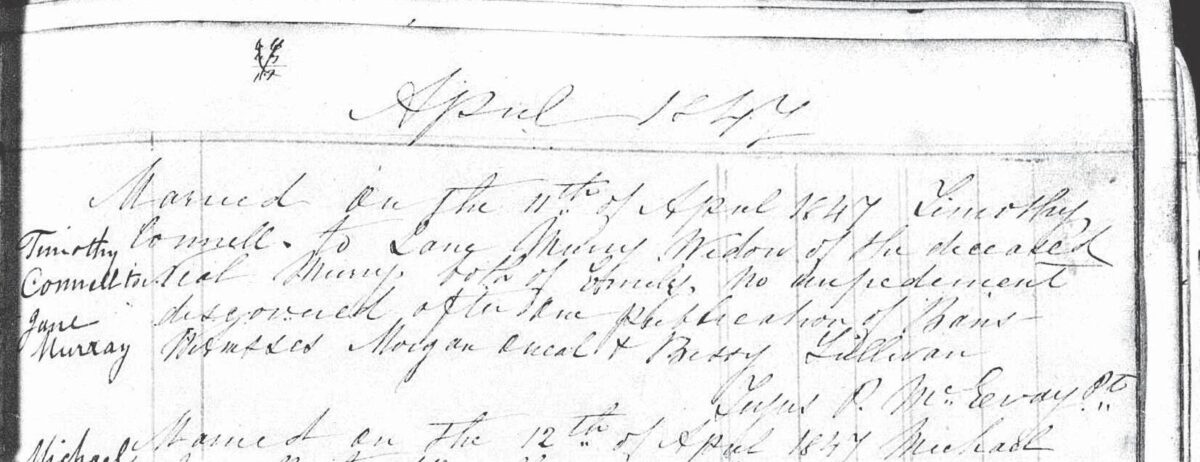 April 1847
Married on the 11th of April 1847 Timothy
Connell to Jane Murry Widow of the deceased
Neal Murry both of Emily. No impediment
discovered after due publication of Bans
Witnesses Morgan Oneal & Bessy Sullivan
P. McEvoy Pt
Timothy
Connell to
Jane
Murray
Married on the 12th of April 1847 Michael
Michael